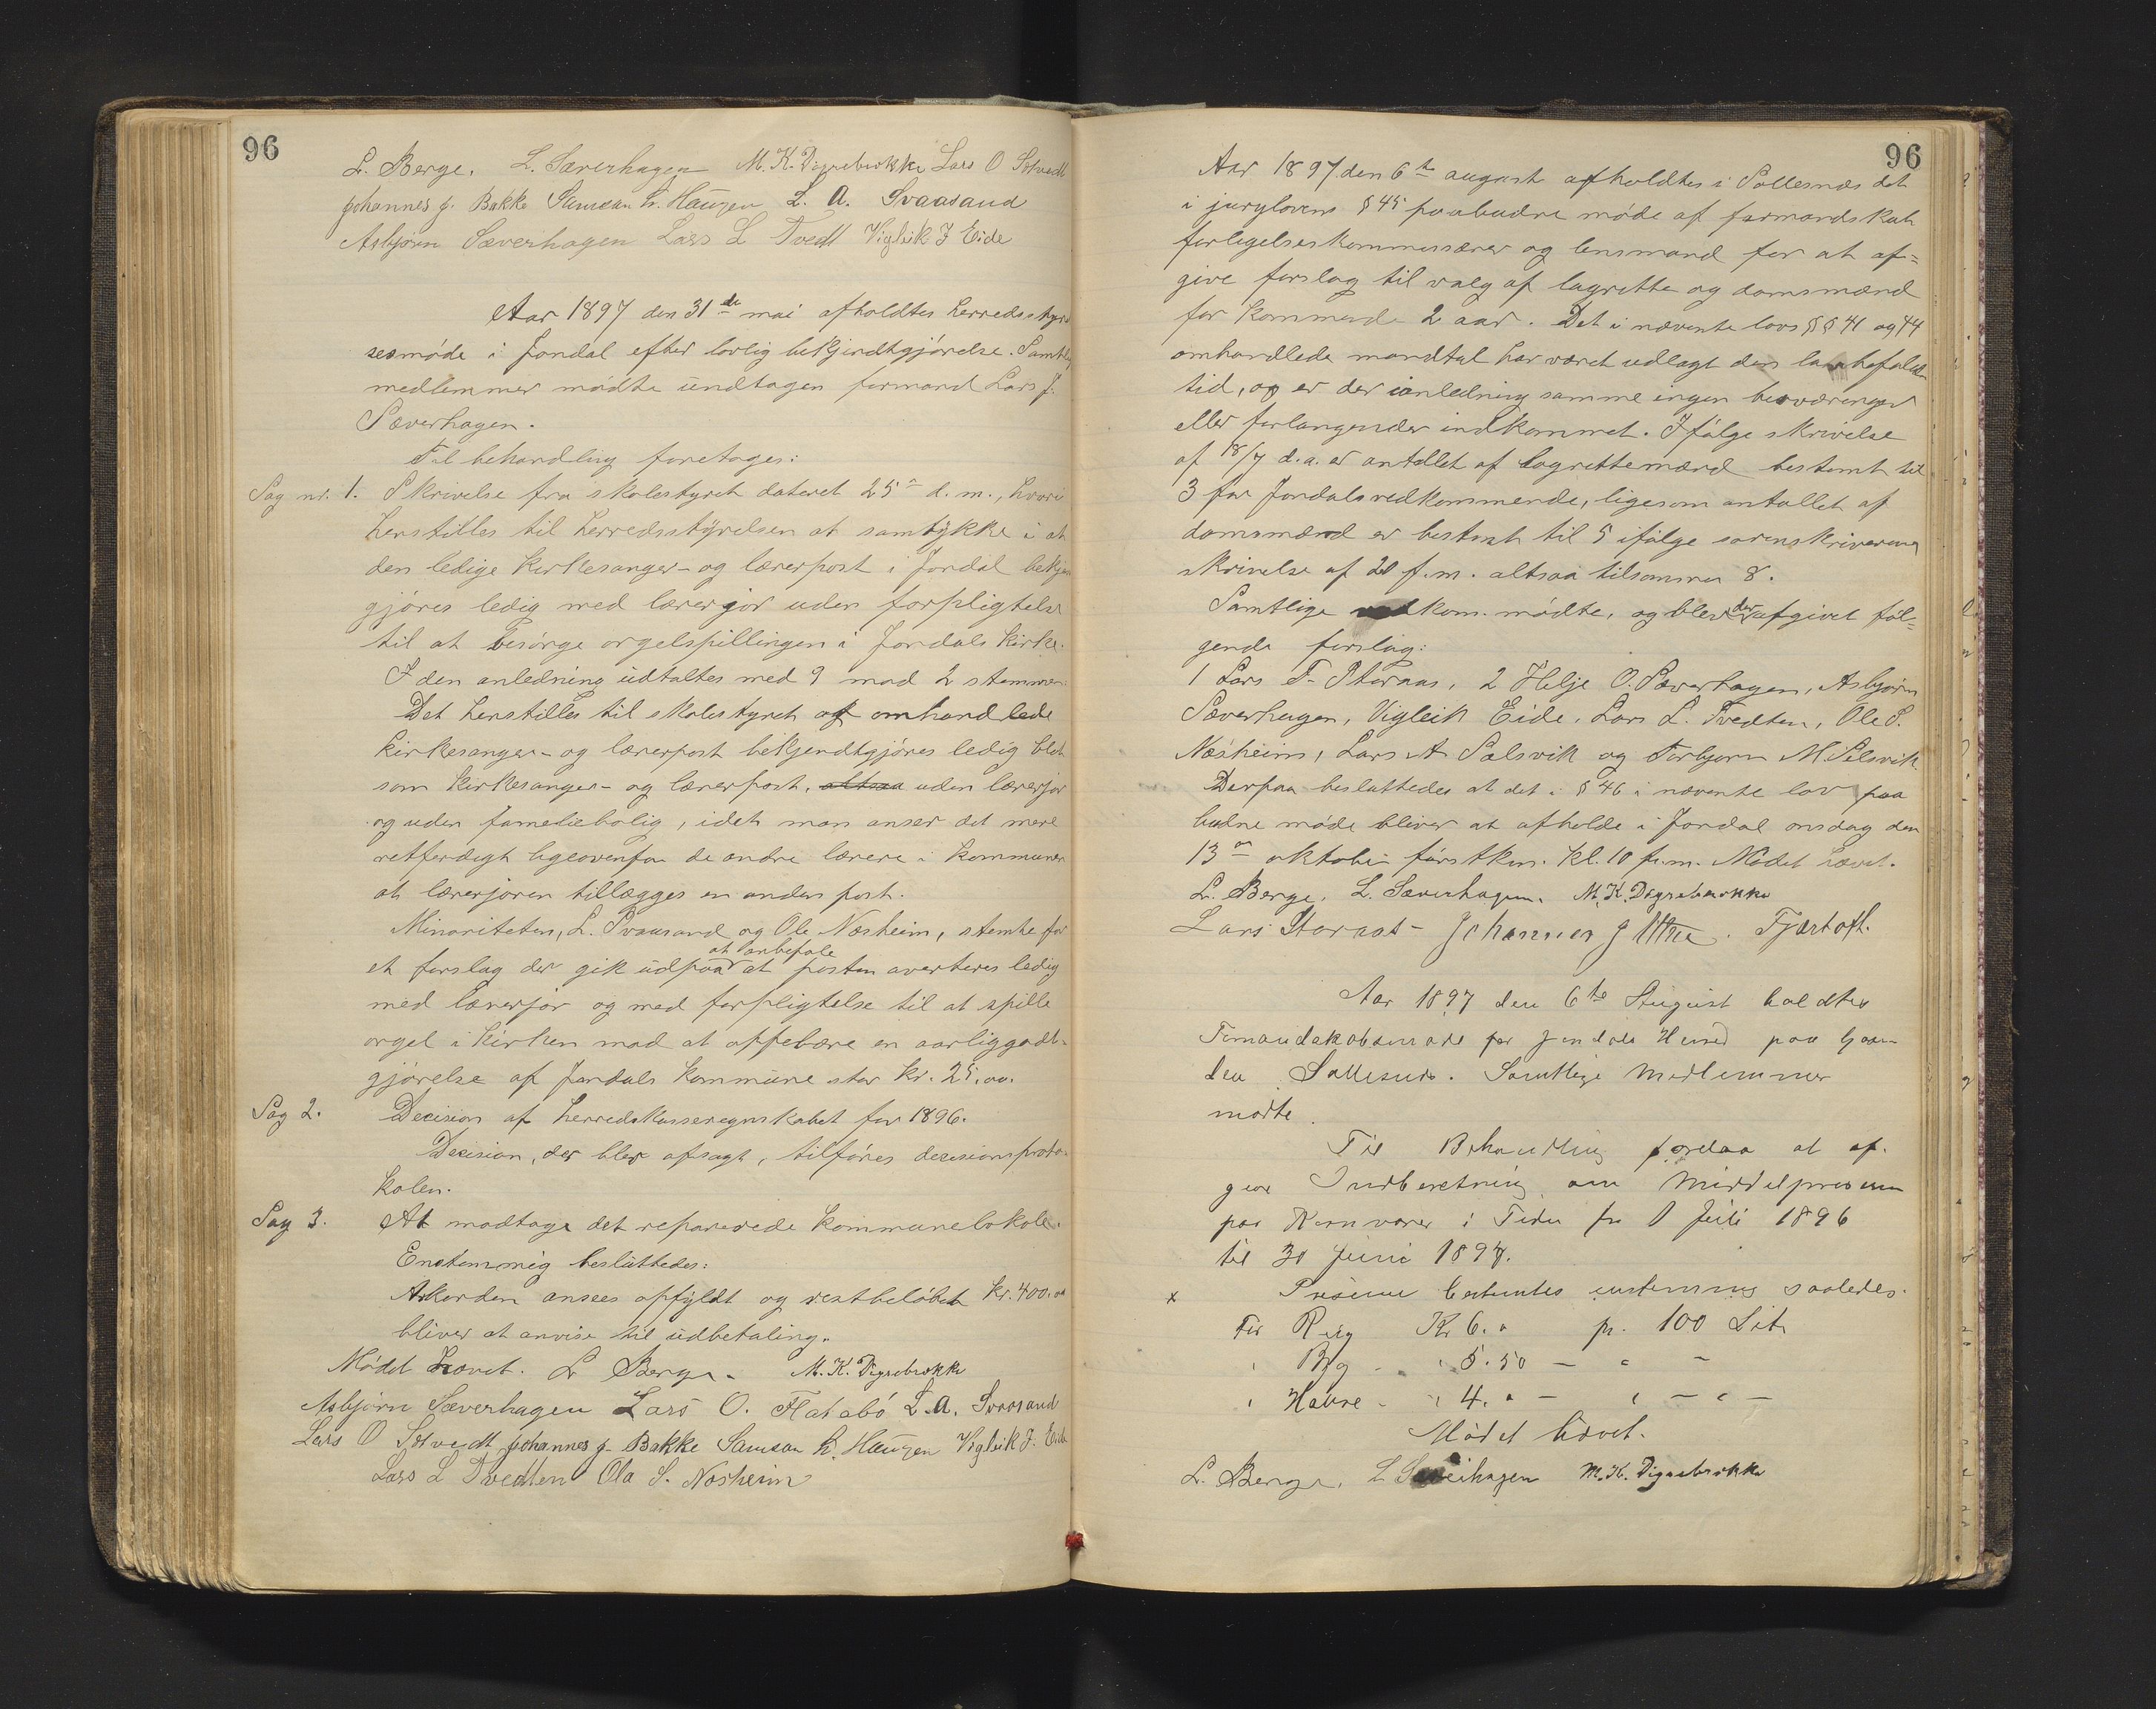 96
L. Berge. L. Særerhagen M. K. Digrebrokke Lars O Solvedt
Johannes J. Bakke Samson H. Haugen L. A. Svaasand
Asbjørn Sæverhagen Lars L Tvedt Vigleik J Eide
Aar 1897 den 31de mai afholdtes herredsstyrel
sesmøde i Jondal efter lovlig bekjendtgjørelse. Samtlig
medlemmer mødte undtagen formand Lars J.
Sæverhagen.
Til behandling foretages:
Sag nr. 1. Skrivelse fra skolestyret dateret 25n d. m., hvori
henstilles til herredsstyrelsen at samtykke i at
den ledige kirkesanger- og lærerpost i Jondal bekjen
gjøres ledig med lærerjor uden forpligtelse
til at besørge orgelspillingen i Jondals kirke.
I den anledning udtaltes med 9 mod 2 stemmer:
Det henstilles til skolestyret at omhandlede
kirkesanger- og lærerpost bekjendtgjøres ledig blot
som kirkesanger- og lærerpost, altsaa uden lærerjor
og uden familiebolig, idet man anser det mere
retferdigt ligeovenfor de andre lærere i kommunen
at lærerjoren tillægges en anden post.
Minoriteten, L. Svaasand og Ole Næsheim, stemte for
et forslag der gik ud paa at anbefale at posten averteres ledig
med lærerjor og med forpligtelse til at spille
orgel i kirken mod at oppebære en aarlig godt-
gjørelse af Jondals kommune stor kr. 25,00.
Sag 2. Decision af herredskasseregnskabet for 1896.
Decision, der blev afsagt, tilføres decisionsproto-
kolen.
Sag 3. At modtage det reparerede kommunelokale.
Enstemmig besluttedes:
Akkorden ansees opfyldt og restbeløbet kr. 400.00
bliver at anvise til udbetaling.
Mødet hævet. L Berge. M. K. Digrebrokke
Asbjørn Sæverhagen Lars O. Flatabø L. A. Svaasand
Lars O Solvedt Johannes J. Bakke Samson H. Haugen Vigleik J. Eide
Lars L Tvedten Ola S. Nøsheim
96
Aar 1897 den 6te august afholdtes i Sollesnæs det
i jurylovens § 45 paabudne møde af formandskab
forligelseskommissærer og lensmand for at af=
give forslag til valg af lagrette og domsmænd
for kommende 2 aar. Det i nævnte lovs §§ 41 og 44
omhandlede mandtal har været udlagt den lovbefalede
tid, og er der i anledning samme ingen besværinger
eller forlangender indkommet. Ifølge skrivelse
af 18/7 d.a. er antallet af lagrettemænd bestemt til
3 for Jondals vedkommende, ligesom antallet af
domsmænd er bestemt til 5 ifølge sorenskriverens
skrivelse af 21 f.m. altsaa tilsammen 8.
Samtlige vedkom. mødte, og blev der afgivet føl=
gende forslag:
1 Lars T. Storaas, 2 Helje O. Sæverhagen, Asbjørn
Sæverhagen, Vigleik Eide, Lars L. Tvedten, Ole S.
Næsheim, Lars A Solsvik og Torbjørn M. Selsvik.
Derpaa besluttedes at det i § 46 i nævnte lov paa
budne møde bliver at afholde i Jondal onsdag den
13de oktober førstkm. kl. 10 fr.m. Mødet hævet.
L. Berge. L. Særerhagen. M. K. Digrebrokke
Lars Storaas Johannes J Utne. Fjærtoft.
Aar 1897 den 6te August holdtes
Formandskabsmøde for Jondals Herred paa Gaar-
den Sollesnæs. Samtlige Medlemmer
mødte.
Til Behandling forelaa at af-
give Indberetning om Middelpriserne
paa Kornvarer i Tiden fra 1 Juli 1896
til 30 Juni 1897.
x Priserne bestemtes enstemmig saaledes.
For Rug Kr 6. " pr. 100 Lit.
" Byg - " 5.50 - " -
" Havre - " 4. " - " - " -
Mødet hævet.
L. Berge. L Særerhagen M. K. Digrebrokke